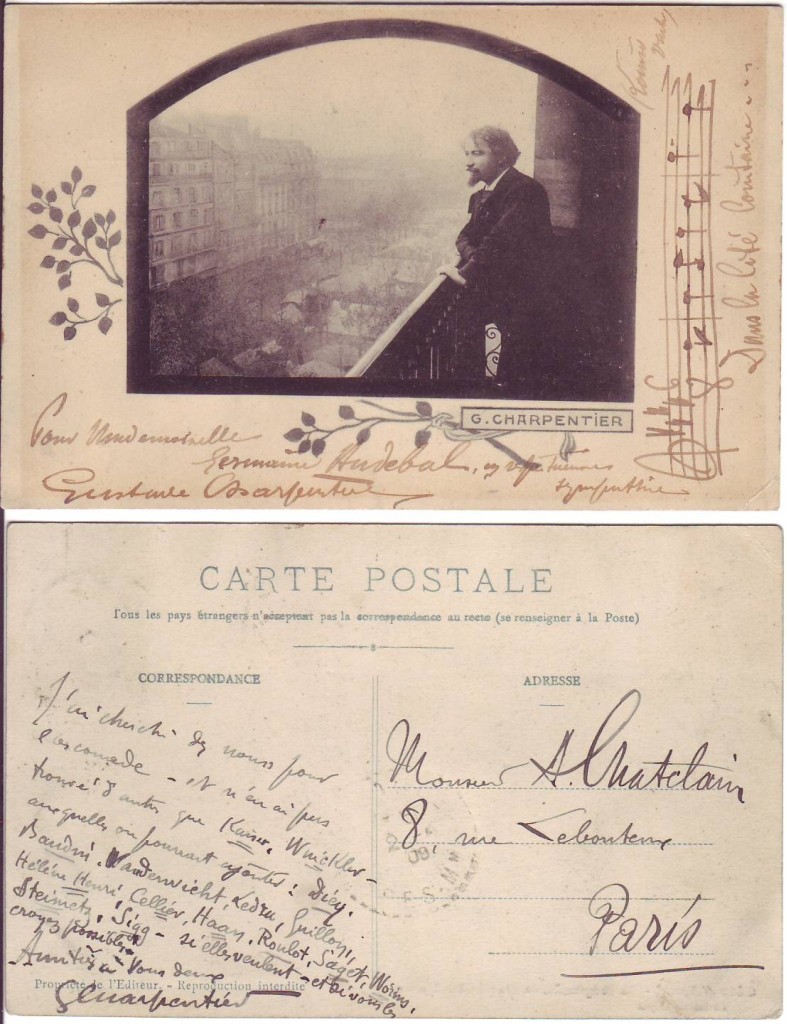 G. CHARPENTIER
Pour Mademoiselle
Germaine Audebal
sympathie
Gustave Charpentier
Dans la cité lointaine...
CARTE POSTALE
Tous les pays étrangers n'acceptent pas la correspondance au recto (se renseigner à la Poste)
CORRESPONDANCE
J'ai cherché des noms pour
l'ascomede - et n'en ai pas
trouvé d'autres que Kaiser, Winckler -
auxquelles on pourrait ajouter : Diéy,
Baudni, Vanderwicht, Ledru, Guillon,
Hélène Henri, Cellier, Haas, Roulot, Saget, Worms,
Steimetz, Sigg - si elles veulent - et si vous les
croyez possibles
Amitiés à vous deux
GCharpentier
Propriété de l'Editeur. - Reproduction interdite
ADRESSE
Monsieur A. Chatelain
8, rue Lebouteux
Paris